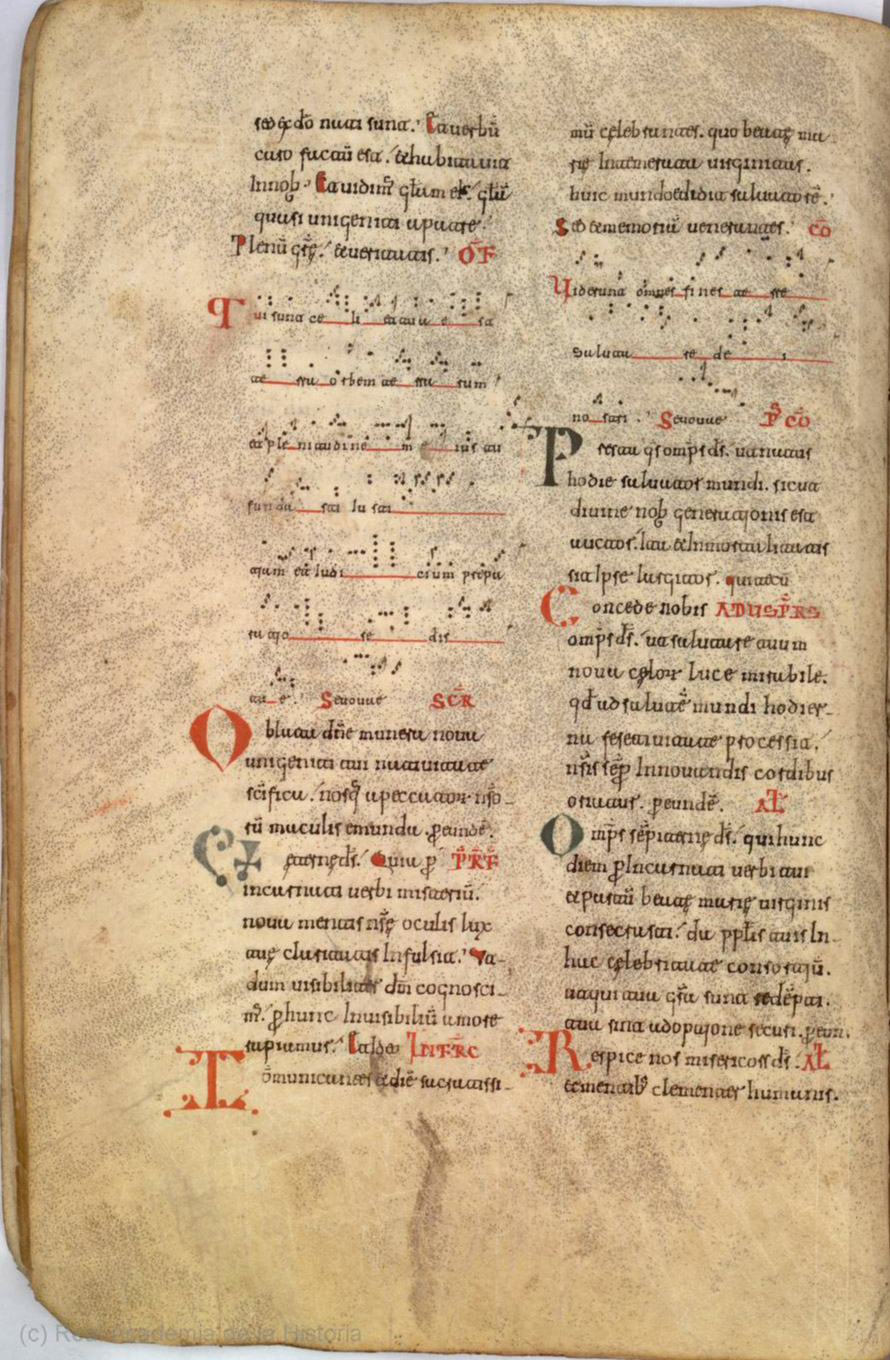 sed ex dō nati sunt. Et uerbū
caro factū est. et habitauit
In nob. Et uidim̄ głam eī. głā
quasi unigeniti a patre.
Plenū grę. et ueritatis. OF
Tui sunt celi et tua est
terra orbem terrarum
et plenitudinem eius tu
fundasti iusti
tium et iudicium prepa
ratio sedis
tue. Seuouae SCR
Oblata dn̄e munera noua
unigeniti tui natiuitate
sc̄ifica. nosq̄ a peccator nr̄o
rū maculis emunda. ꝑ eundē.
eternę ds̄. Quia ꝑ PRF
incarnati uerbi misteriū.
noua mentis nr̄ę oculis lux
tuę claritatis Infulsit. Ut
dum uisibiliter dm̄ cognosci
m̄. ꝑ hunc Inuisibiliū amore
rapiamur. Et ideo INFRC
Cōmunicantes et diē sacratissi
mū celebrantes. quo beatę ma
rię Intemerata uirginitas.
huic mundo edidit saluatorē.
Sed et memoriā uenerantes. CŌ
Uiderunt omnes fines terre
salutare dei
nostri. Seuouae P CŌ
Presta q̄s omps ds̄. ut natus
hodie saluator mundi. sicut
diuine nob generationis est
auctor. ita et Inmortalitatis
sit Ipse largitor. qui tecū
Concede nobis AD USPRS
omps ds̄. ut salutare tuum
noua cęlor luce mirabile.
qd̄ ad salutē mundi hodier
na festiuitate processit.
nr̄is sēp Innouandis cordibus
oriatur. ꝑ eundē. AŁ
Omps sēpiternę ds̄. qui hunc
diem ꝑ Incarnati uerbi tui
et partū beatę marię uirginis
consecrasti. da pptis tuis In
hac celebritate consortiū.
ut qui tua gr̄a sunt redēpti.
tua sint adoptione securi. ꝑ eun.
Respice nos misericors ds̄. AŁ
et mentib clementer humanis.